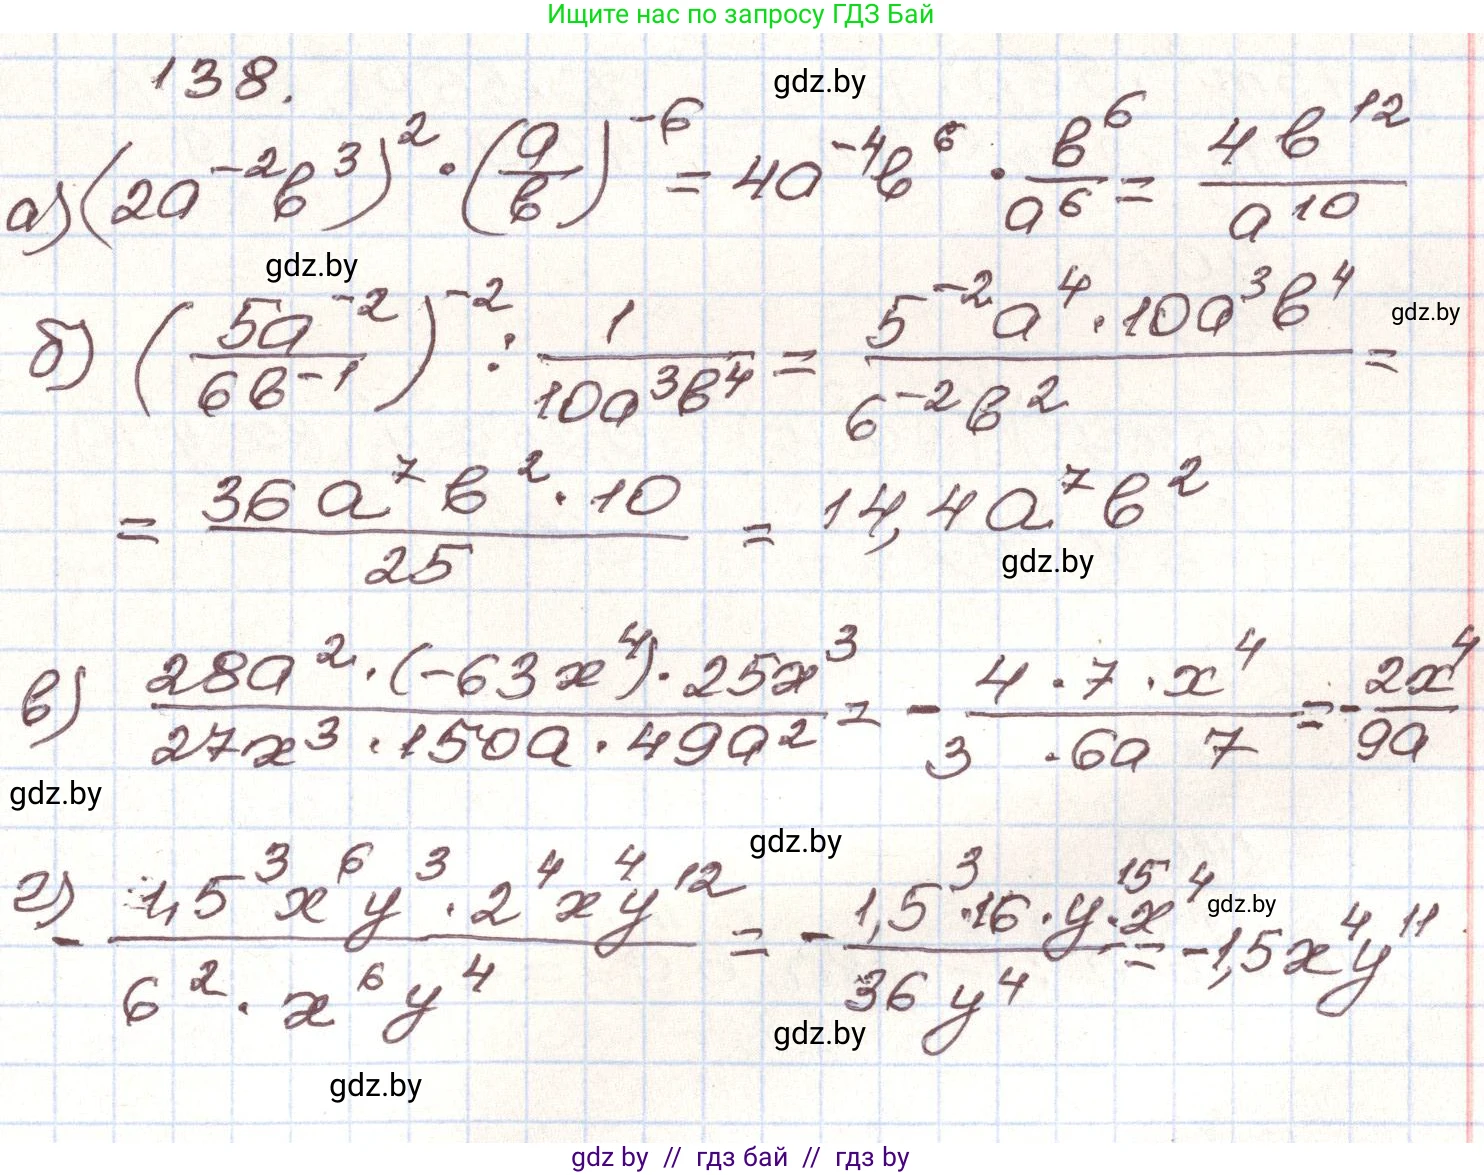 Ищите нас по запросу ГДЗ Бай
138.
gdz.by
а) (2a⁻²b³)² · (a/b)⁻⁶ = 4a⁻⁴b⁶ · b⁶/a⁶ = 4b¹²/a¹⁰
gdz.by
б) (5a⁻²/6b⁻¹)⁻² : 1/10a³b⁴ = 5⁻²a⁴·10a³b⁴/6⁻²b² =
gdz.by
= 36a⁷b²·10/25 = 14,4a⁷b²
gdz.by
в) 28a²·(-63x⁴)·25x³/27x³·150a·49a² = - 4·7·x⁴/3·6a 7 = - 2x⁴/9a
gdz.by
gdz.by
г) - 1,5³x⁶y³·2⁴x⁴y¹²/6²·x⁶y⁴ = - 1,5³·16·y¹⁵·x⁴/36y⁴ = -1,5x⁴y¹¹
gdz.by
gdz.by
gdz.by
gdz by // гдз бай // гдз by